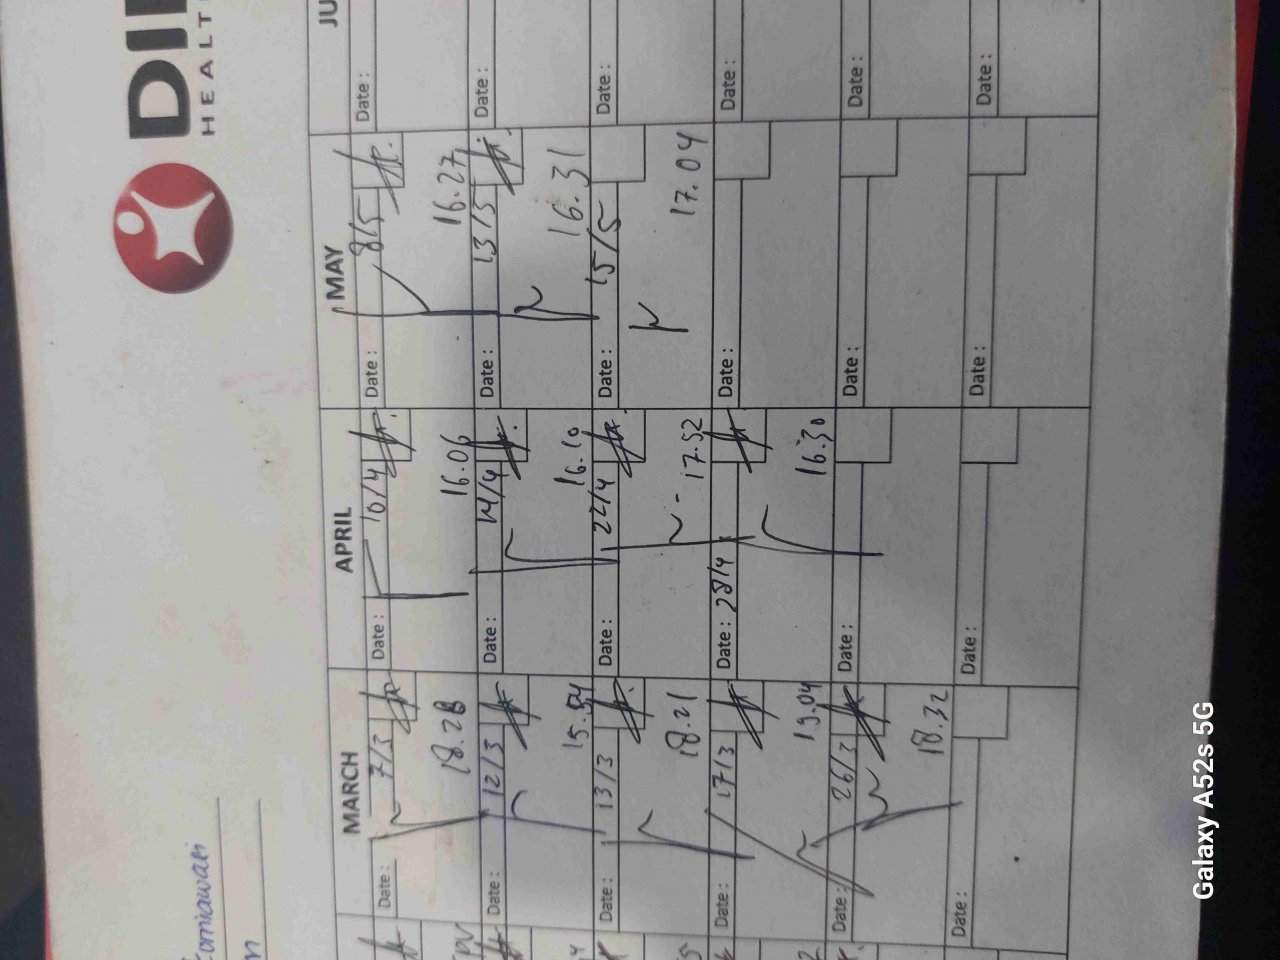 HEALT
MARCH
APRIL
MAY
JU
Date: 7/3
18.28
Date: 10/4
16.06
Date: 8/5
16.27
Date:
Date: 12/3
15.54
Date: 14/4
16.10
Date: 13/5
16.31
Date:
Date: 13/3
18.21
Date: 22/4
17.52
Date: 15/5
17.04
Date:
Date: 17/3
19.04
Date: 28/4
16.30
Date:
Date:
Date: 26/3
18.32
Date:
Date:
Date:
Date:
Date:
Date:
Date:
Galaxy A52s 5G